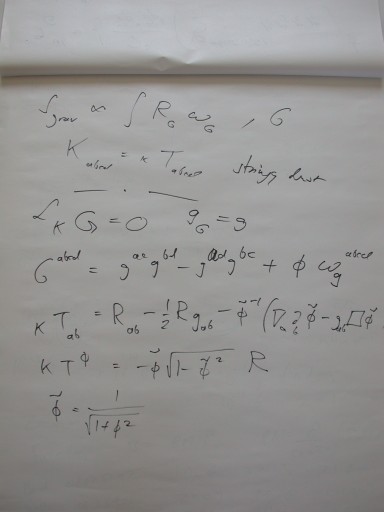 S_grav ∝ ∫ R_G ω_G , G
K_abcd = κ T_abcd stringy
ℒ_K G = 0 g_G = g
G^abcd = g^ac g^bd − g^ad g^bc + φ ω_g^abcd
κ T_ab = R_ab − 1/2 R g_ab − φ̃^−1 (∇_a ∂_b φ̃ − g_ab □ φ̃
κ T^φ = − φ̃ √(1 − φ̃^2) R
φ̃ = 1/√(1+φ^2)